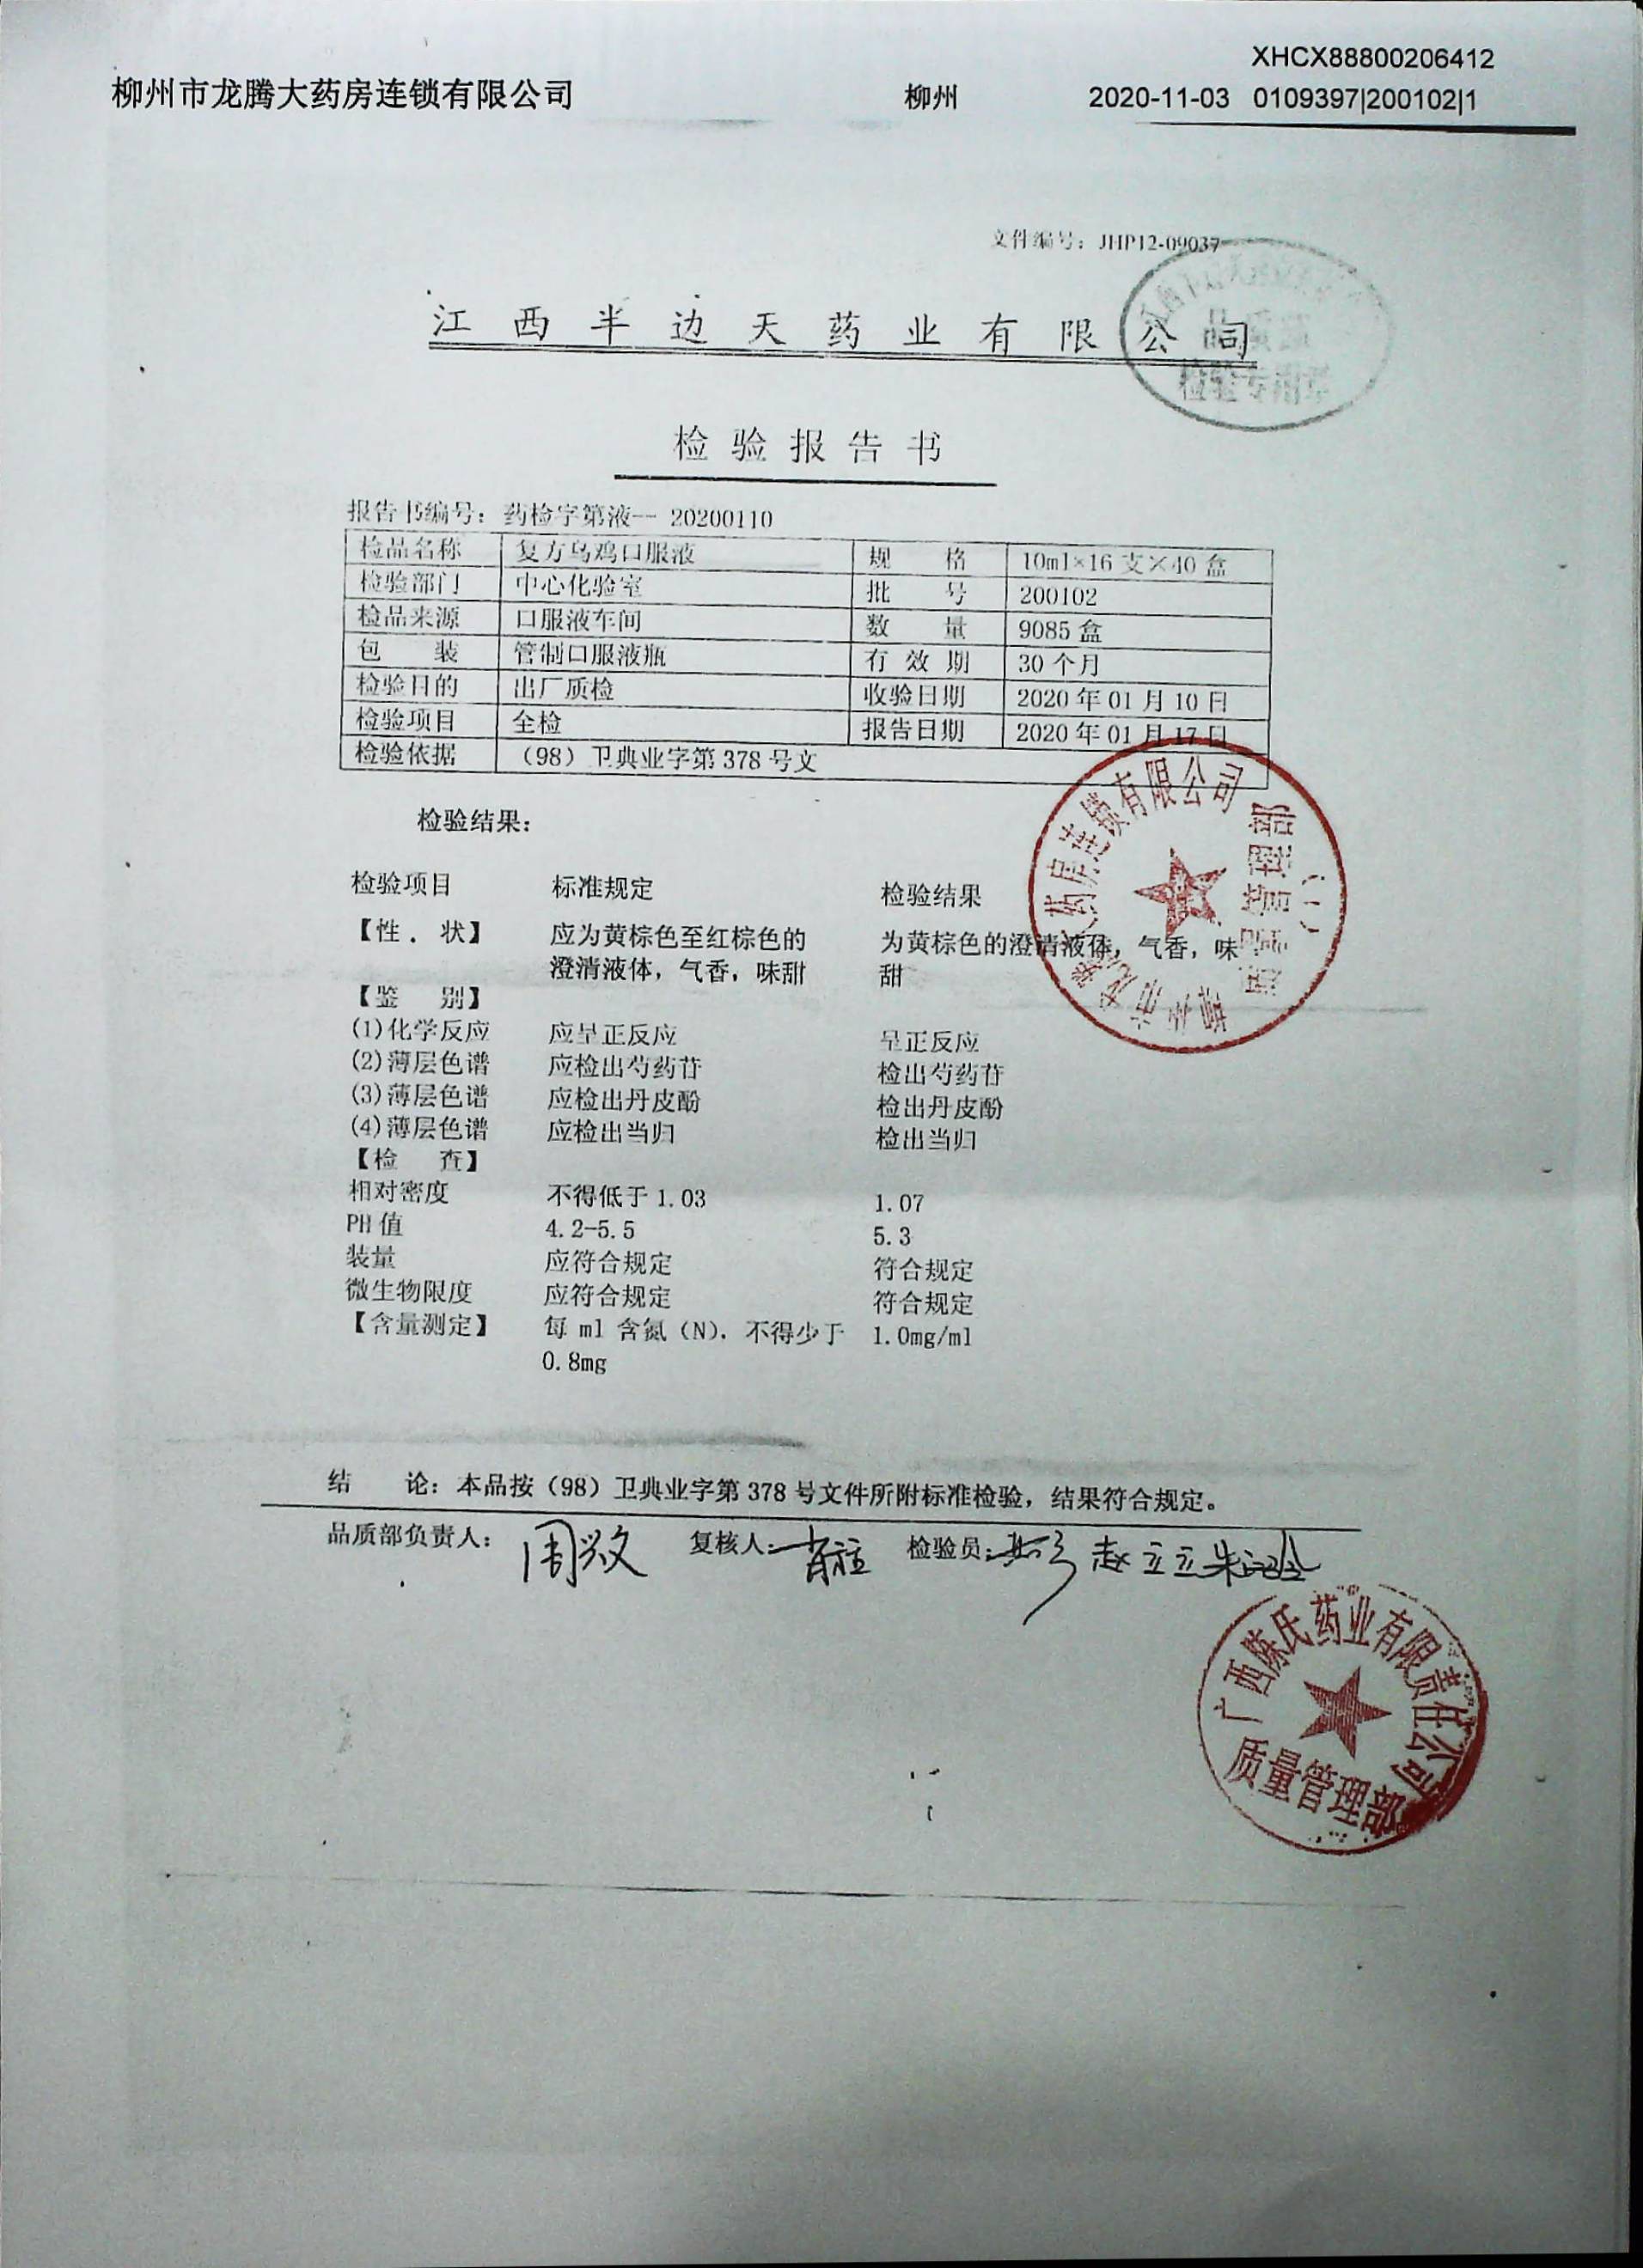 XHCX88800206412
柳州市龙腾大药房连锁有限公司 柳州 2020-11-03 0109397|200102|1
文件编号：JHP12-09037
江西半边天药业有限公司
检验专用章
检验报告书
报告书编号：药检字第液-- 20200110
检品名称 复方乌鸡口服液 规 格 10ml×16 支×40 盒
检验部门 中心化验室 批 号 200102
检品来源 口服液车间 数 量 9085 盒
包 装 管制口服液瓶 有 效 期 30 个月
检验目的 出厂质检 收验日期 2020 年 01 月 10 日
检验项目 全检 报告日期 2020 年 01 月 17 日
检验依据 （98）卫典业字第 378 号文
检验结果：
检验项目 标准规定 检验结果
【性．状】 应为黄棕色至红棕色的 为黄棕色的澄清液体，气香，味
澄清液体，气香，味甜 甜
【鉴 别】
(1)化学反应 应呈正反应 呈正反应
(2)薄层色谱 应检出芍药苷 检出芍药苷
(3)薄层色谱 应检出丹皮酚 检出丹皮酚
(4)薄层色谱 应检出当归 检出当归
【检 查】
相对密度 不得低于 1.03 1.07
PH 值 4.2-5.5 5.3
装量 应符合规定 符合规定
微生物限度 应符合规定 符合规定
【含量测定】 每 ml 含氮（N）．不得少于 1.0mg/ml
0.8mg
结 论：本品按（98）卫典业字第 378 号文件所附标准检验，结果符合规定。
品质部负责人： 复核人： 检验员： 赵立立
药房连锁有限公司
质量管理部
广西陈氏药业有限责任公司
质量管理部